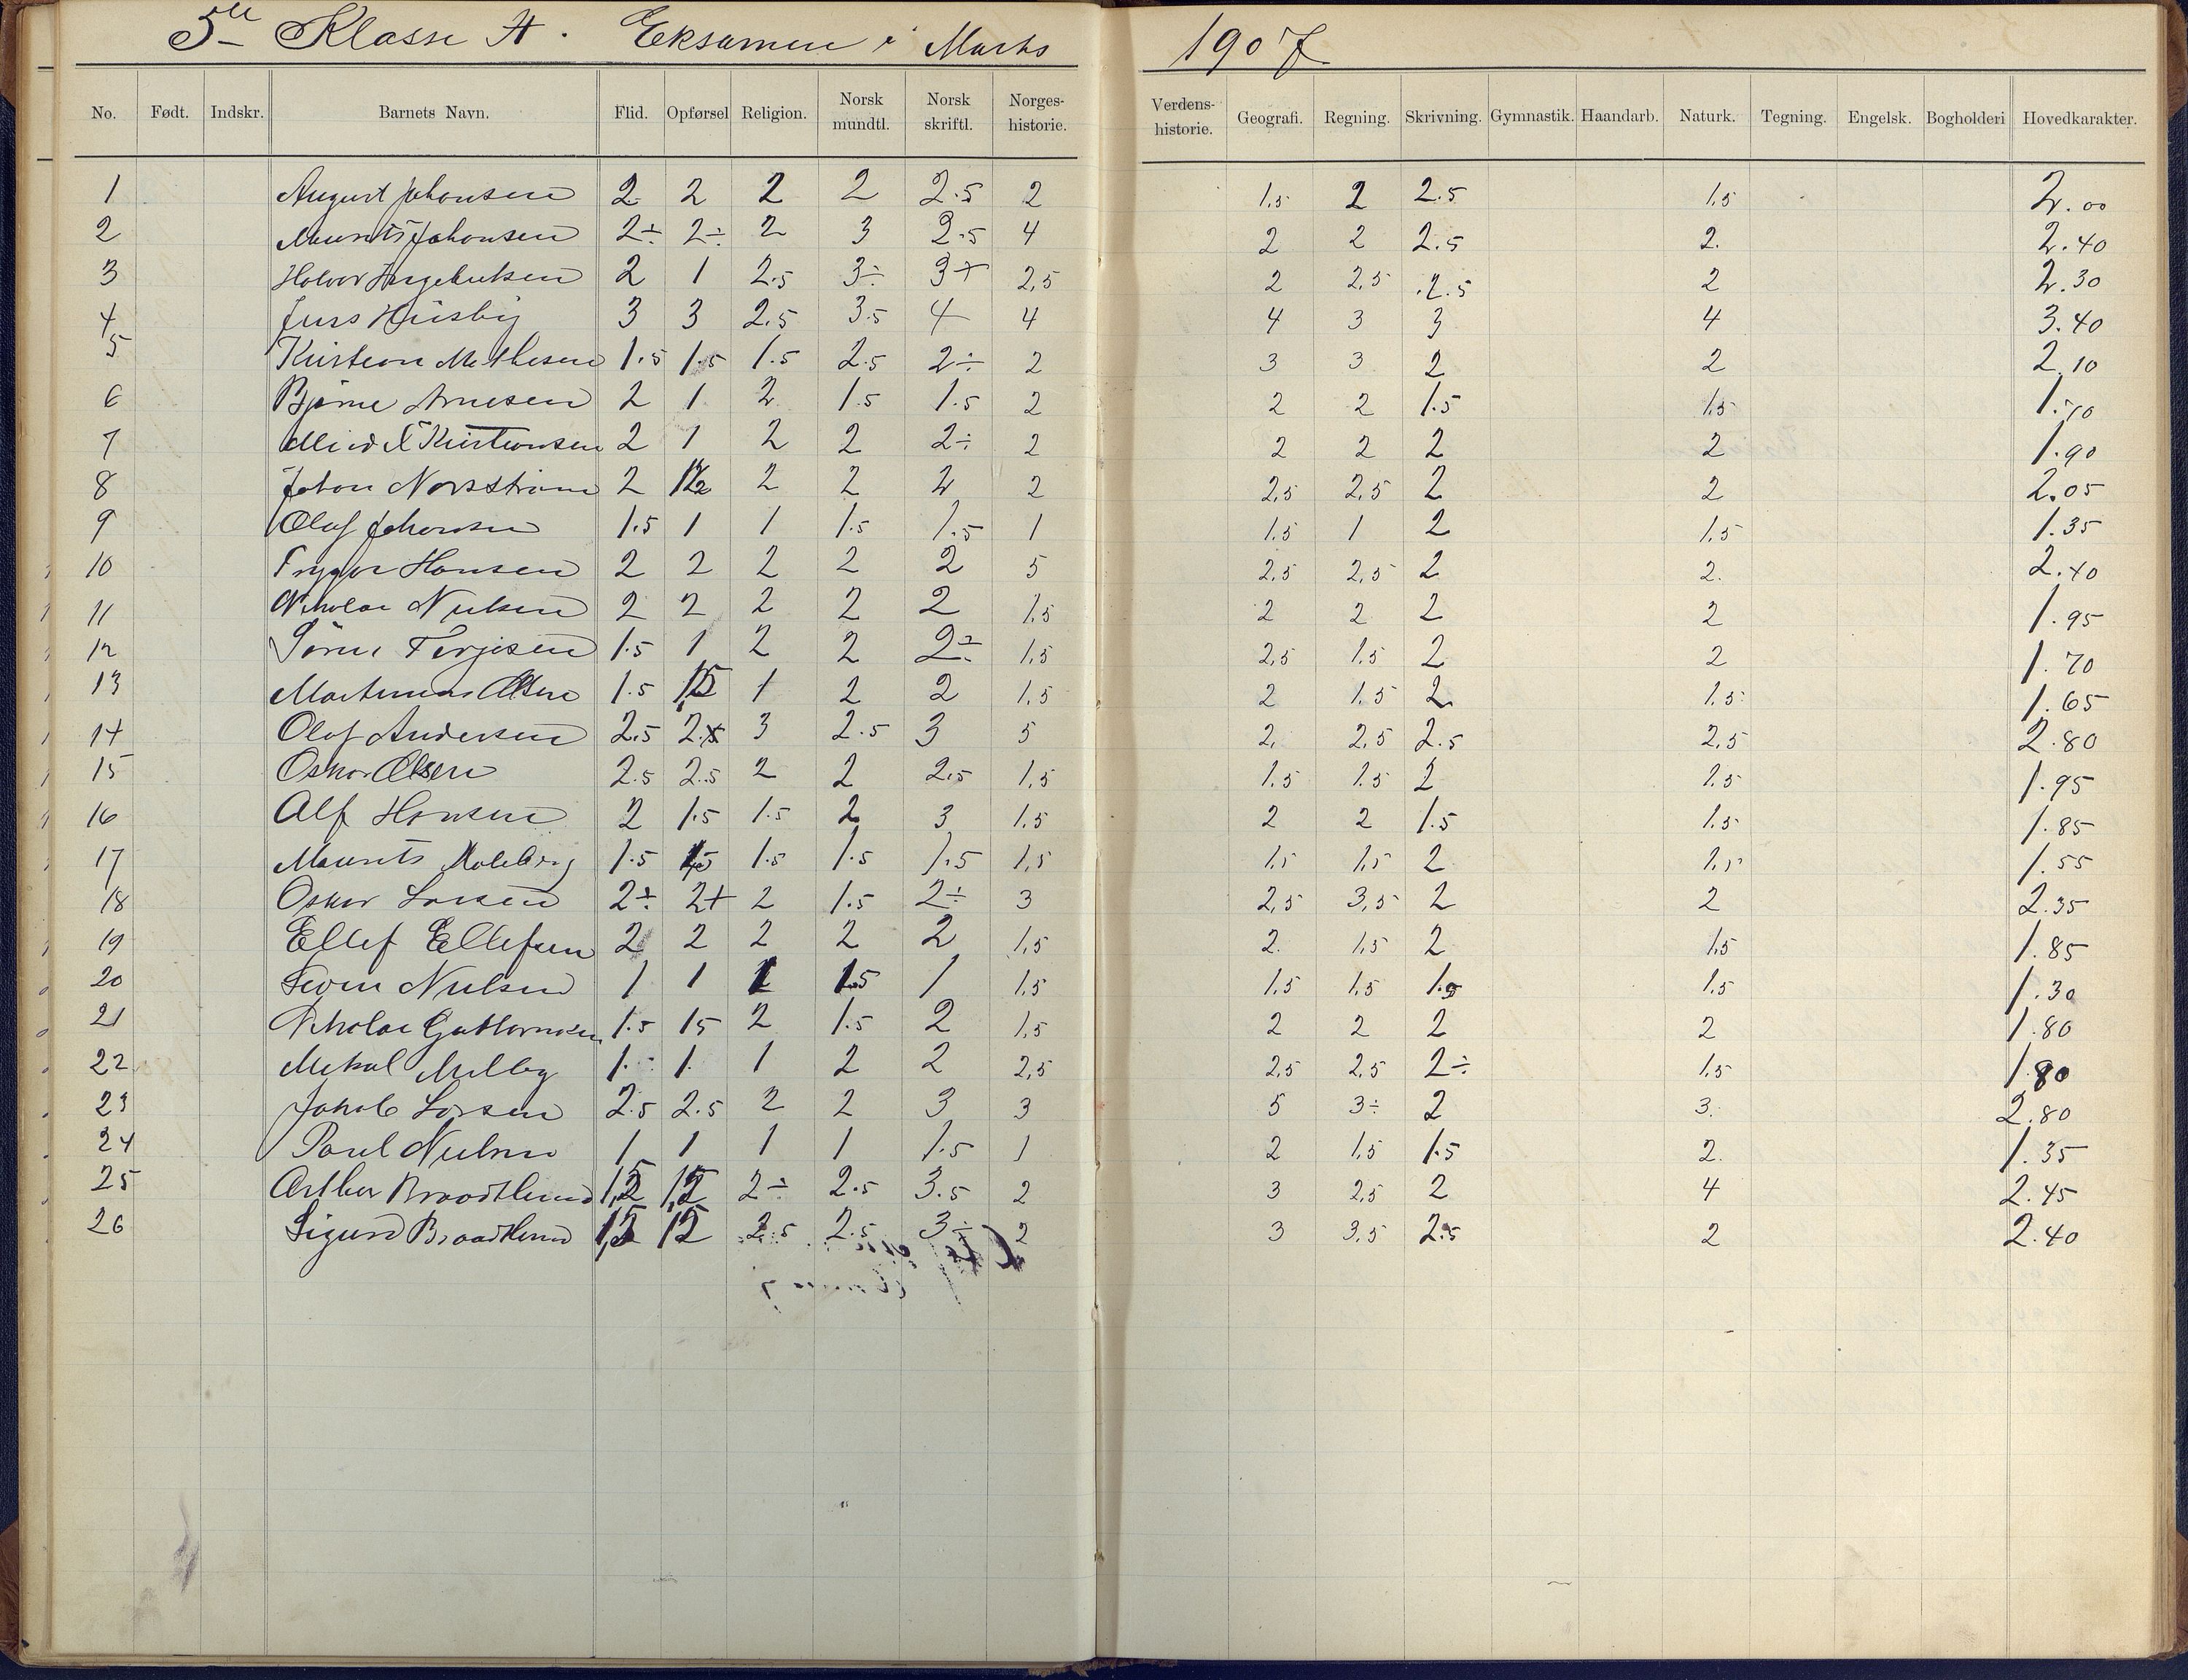 5te Klasse A. Eksamen i Marts 1907
No. Født. Indskr. Barnets Navn. Flid. Opførsel Religion. Norsk mundtl. Norsk skriftl. Norges-historie. Verdens-historie. Geografi. Regning. Skrivning. Gymnastik. Haandarb. Naturk. Tegning. Engelsk. Bogholderi Hovedkarakter.
1 August Johansen 2 2 2 2 2.5 2 1,5 2 2.5 1,5 2.00
2 Maurits Johansen 2÷ 2÷ 2 3 2.5 4 2 2 2.5 2. 2.40
3 Halvor Ingebretsen 2 1 2.5 3÷ 3+ 2,5 2 2,5 2.5 2 2.30
4 Jens Huisby 3 3 2.5 3.5 4 4 4 3 3 4 3.40
5 Kristian Mathesen 1.5 1.5 1.5 2.5 2÷ 2 3 3 2 2 2.10
6 Bjarne Arnesen 2 1 2 1.5 1.5 2 2 2 1.5 1,5 1.70
7 Kristiansen 2 1 2 2 2÷ 2 2 2 2 2 1.90
8 Johan Norsström 2 2 2 2 2 2,5 2,5 2 2 2.05
9 Olaf Johansen 1.5 1 1 1.5 1.5 1 1,5 1 2 1,5 1.35
10 Trygve Hansen 2 2 2 2 2 5 2,5 2,5 2 2. 2.40
11 Nikolai Nielsen 2 2 2 2 2 1,5 2 2 2 2 1.95
12 Sørine Terjesen 1.5 1 2 2 2÷ 1,5 2,5 1.5 2 2 1.70
13 Martinius Olsen 1.5 1,5 1 2 2 1,5 2 1,5 2 1,5 1.65
14 Olaf Andersen 2.5 2.5 3 2.5 3 5 2, 2,5 2.5 2,5 2.80
15 Oskar Olsen 2.5 2.5 2 2 2.5 1,5 1.5 1.5 2 1.5 1.95
16 Alf Hansen 2 1.5 1.5 2 3 1,5 2 2 1.5 1,5 1.85
17 Maurits 1.5 1,5 1.5 1.5 1.5 1,5 1,5 1,5 2 1,5 1.55
18 Oskar Larsen 2÷ 2+ 2 1.5 2÷ 3 2,5 3,5 2 2 2.35
19 Ellef Ellefsen 2 2 2 2 2 1,5 2. 1,5 2 1,5 1.85
20 Sven Nielsen 1 1 1 1.5 1 1,5 1,5 1,5 1.5 1.5 1.30
21 Nikolai Guttormsen 1.5 15 2 1.5 2 1,5 2 2 2 2 1.80
22 Mikal Melby 1.÷ 1 1 2 2 2,5 2,5 2,5 2÷ 1,5 1.80
23 Jakob Larsen 2.5 2.5 2 2 3 3 5 3÷ 2 3. 2.80
24 Paul Nielsen 1 1 1 1 1.5 1 2 1,5 1.5 2. 1.35
25 Arthur Braadtlund 2÷ 2.5 3.5 2 3 2,5 2 4 2.45
26 Sigurd Braadtlund 2.5 2.5 3÷ 2 3 3,5 2.5 2 2.40